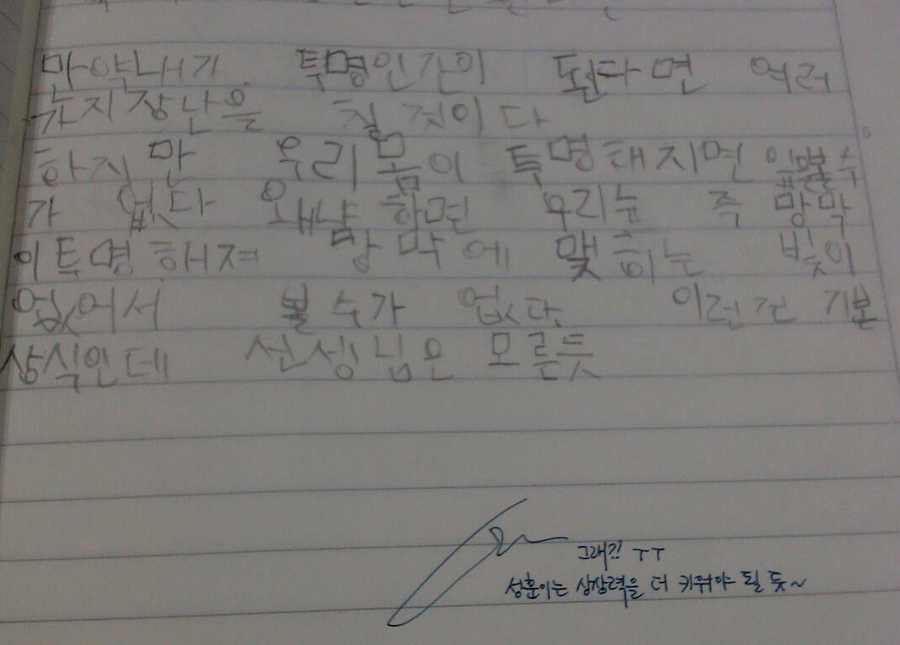 만약내가 투명인간이 된다면 여러
가지장난을 칠 것이다
하지만 우리몸이 투명해지면 볼수
가 없다 왜냠 하면 우리눈 즉 망막
이투명해져 망막에 맺히는 빛이
없어서 볼 수가 없다. 이런건 기본
상식인데 선생님은 모른듯
그래?! ㅜㅜ
성훈이는 상상력을 더 키워야 될 듯~